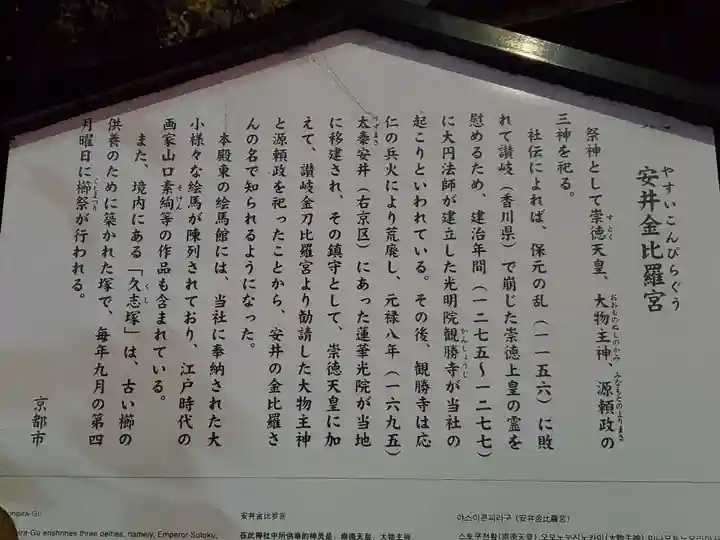 安井金比羅宮
やすいこんぴらぐう
祭神として崇徳天皇、大物主神、源頼政の
すとく
おおものぬしのかみ
みなもとのよりまさ
三神を祀る。
社伝によれば、保元の乱（一一五六）に敗
れて讃岐（香川県）で崩じた崇徳上皇の霊を
慰めるため、建治年間（一二七五〜一二七七）
に大円法師が建立した光明院観勝寺が当社の
かんしょうじ
起こりといわれている。その後、観勝寺は応
仁の兵火により荒廃し、元禄八年（一六九五）
太秦安井（右京区）にあった蓮華光院が当地
うずまさ
に移建され、その鎮守として、崇徳天皇に加
えて、讃岐金刀比羅宮より勧請した大物主神
と源頼政を祀ったことから、安井の金比羅さ
んの名で知られるようになった。
本殿東の絵馬館には、当社に奉納された大
小様々な絵馬が陳列されており、江戸時代の
画家山口素絢等の作品も含まれている。
そけん
また、境内にある「久志塚」は、古い櫛の
くし
供養のために築かれた塚で、毎年九月の第四
月曜日に櫛祭が行われる。
くしまつり
京都市
安井金比罗宫
야스이콘피라구 (安井金比羅宮)
ra-Gu enshrines three deities, namely, Emperor Sutoku,
在此神社中所供奉的神灵是，崇德天皇，大物主神，